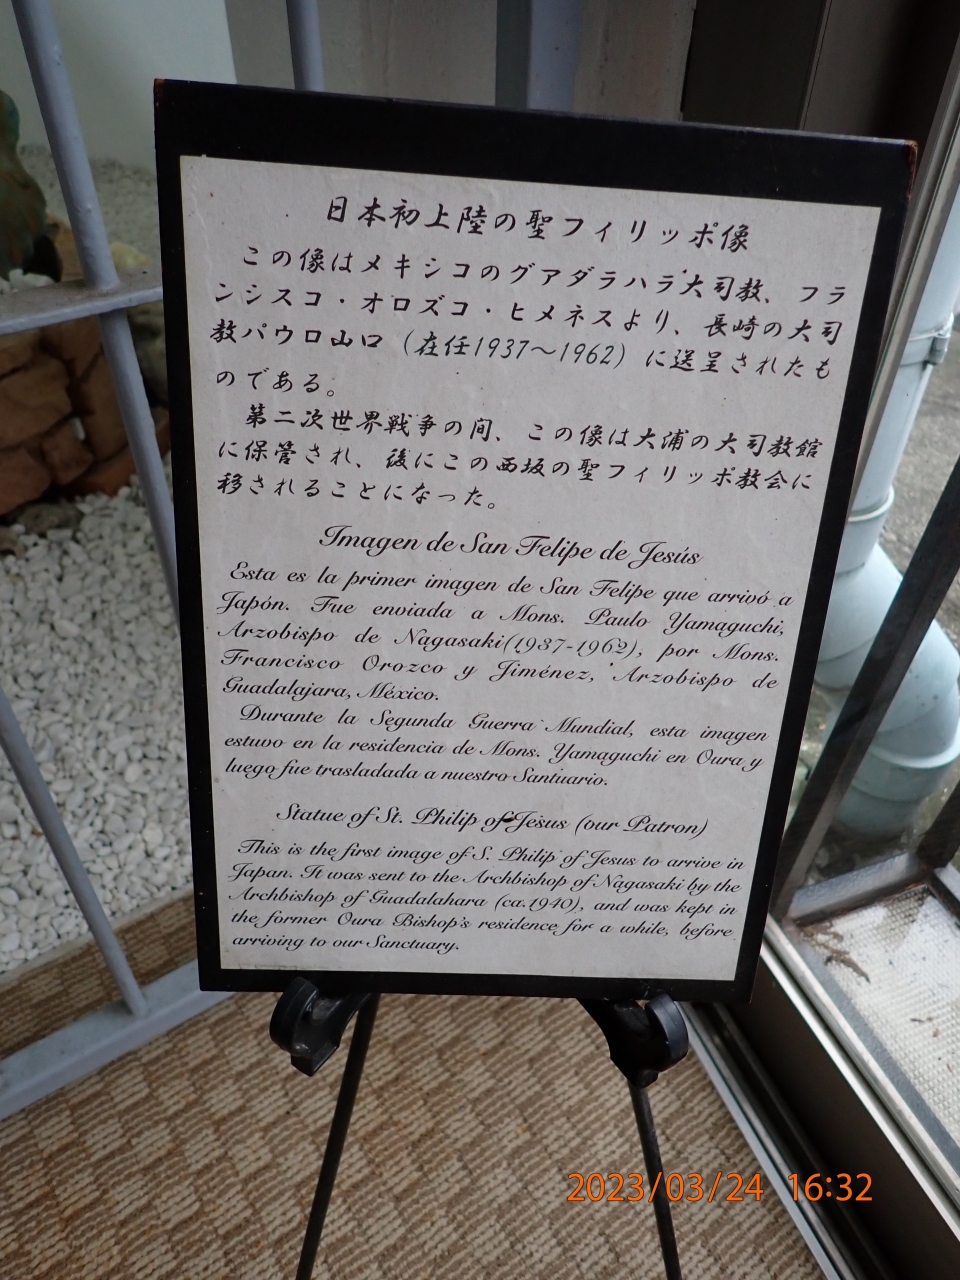 日本初上陸の聖フィリッポ像
この像はメキシコのグアダラハラ大司教、フラ
ンシスコ・オロズコ・ヒメネスより、長崎の大司
教パウロ山口（在任1937～1962）に送呈されたも
のである。
第二次世界戦争の間、この像は大浦の大司教館
に保管され、後にこの西坂の聖フィリッポ教会に
移されることになった。
Imagen de San Felipe de Jesús
Esta es la primer imagen de San Felipe que arrivó a
Japón. Fue enviada a Mons. Paulo Yamaguchi,
Arzobispo de Nagasaki(1937-1962), por Mons.
Francisco Orozco y Jiménez, Arzobispo de
Guadalajara, México.
Durante la Segunda Guerra Mundial, esta imagen
estuvo en la residencia de Mons. Yamaguchi en Oura y
luego fue trasladada a nuestro Santuario.
Statue of St. Philip of Jesus (our Patron)
This is the first image of S. Philip of Jesus to arrive in
Japan. It was sent to the Archbishop of Nagasaki by the
Archbishop of Guadalahara (ca.1940), and was kept in
the former Oura Bishop's residence for a while, before
arriving to our Sanctuary.
2023/03/24 16:32